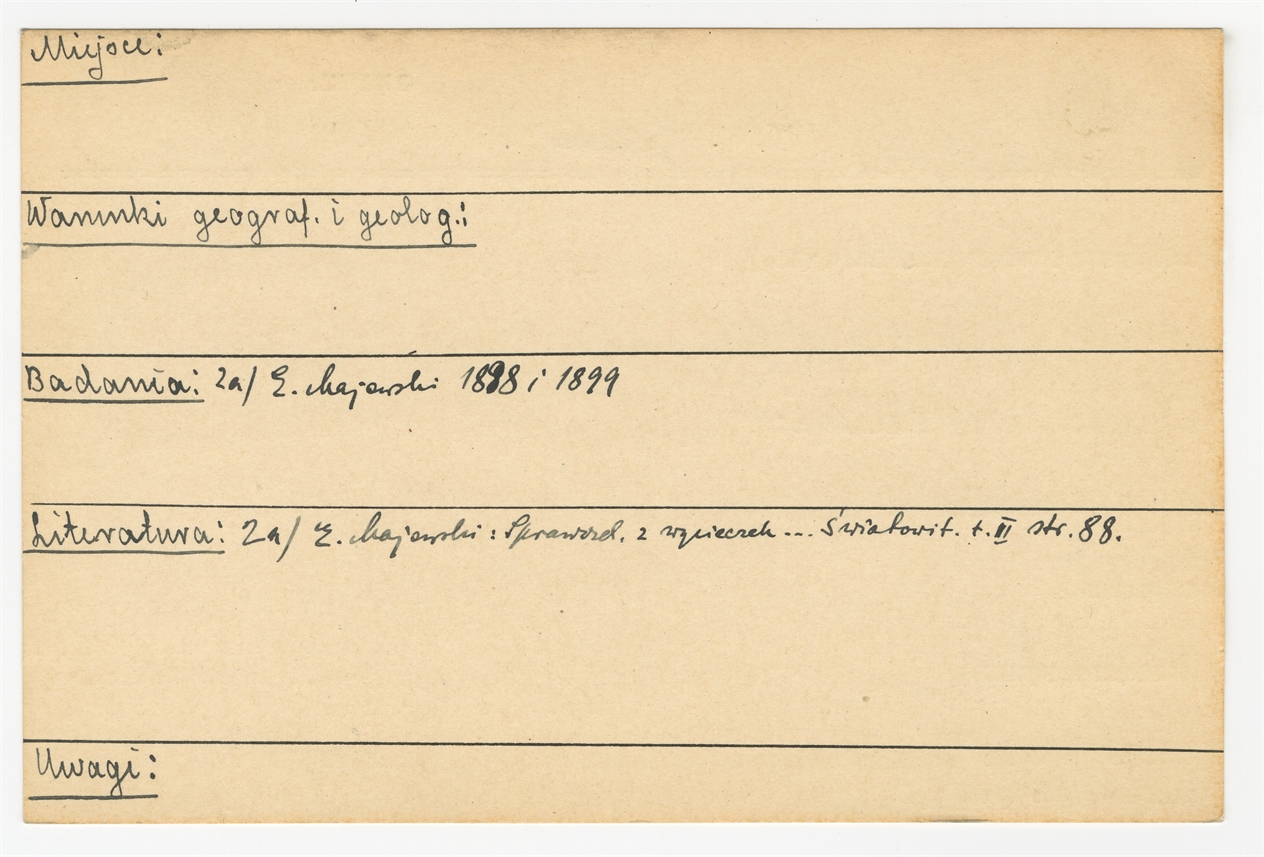 Miejsce:
Warunki geograf. i geolog.:
Badania: 2a/ E. Majewski 1898 i 1899
Literatura: 2a/ E. Majewski: Sprawozd. z wycieczek ... Światowit. t. II str. 88.
Uwagi: